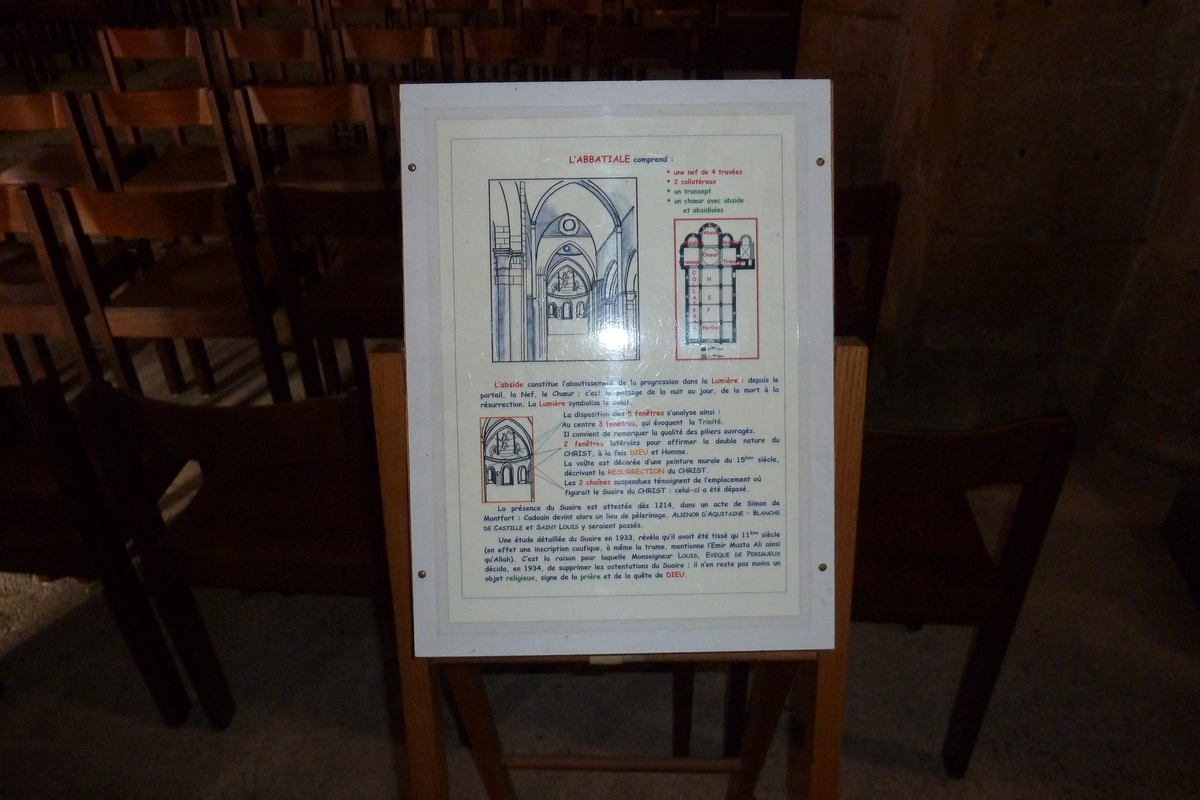 L'ABBATIALE comprend :
* une nef de 4 travées
* 2 collatéraux
* un transept
* un chœur avec abside
et absidioles
Abside
Chœur
Transept
COLLATERAL
N
E
F
Narthex
L'abside constitue l'aboutissement de la progression dans la Lumière : depuis le
portail, la Nef, le Chœur ; c'est le passage de la nuit au jour, de la mort à la
résurrection. La Lumière symbolise le salut.
La disposition des 5 fenêtres s'analyse ainsi :
Au centre 3 fenêtres, qui évoquent la Trinité.
Il convient de remarquer la qualité des piliers ouvragés.
2 fenêtres latérales pour affirmer la double nature du
CHRIST, à la fois DIEU et Homme.
La voûte est décorée d'une peinture murale du 15ème siècle,
décrivant la RESURRECTION du CHRIST.
Les 2 chaînes suspendues témoignent de l'emplacement où
figurait le Suaire du CHRIST : celui-ci a été déposé.
La présence du Suaire est attestée dès 1214, dans un acte de Simon de
Montfort : Cadouin devint alors un lieu de pèlerinage. ALIENOR D'AQUITAINE – BLANCHE
DE CASTILLE et SAINT LOUIS y seraient passés.
Une étude détaillée du Suaire en 1933, révéla qu'il avait été tissé au 11ème siècle
(en effet une inscription coufique, à même la trame, mentionne l'Emir Musta Ali ainsi
qu'Allah). C'est la raison pour laquelle Monseigneur LOUIS, EVEQUE DE PERIGUEUX
décida, en 1934, de supprimer les ostentations du Suaire ; il n'en reste pas moins un
objet religieux, signe de la prière et de la quête de DIEU.